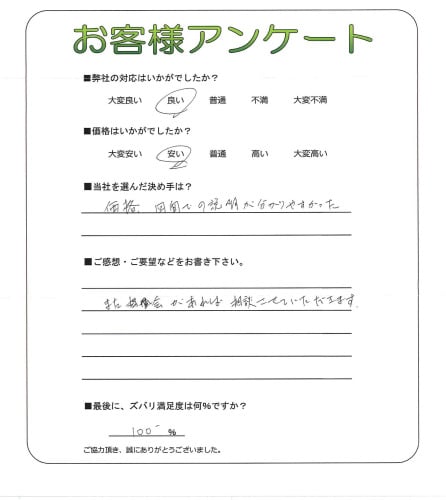 お客様アンケート
■弊社の対応はいかがでしたか?
大変良い 良い 普通 不満 大変不満
■価格はいかがでしたか?
大変安い 安い 普通 高い 大変高い
■当社を選んだ決め手は?
価格 図面での説明が分かりやすかった
■ご感想・ご要望などをお書き下さい。
また機会があれば相談させていただきます。
■最後に、ズバリ満足度は何%ですか?
100 %
ご協力頂き、誠にありがとうございました。